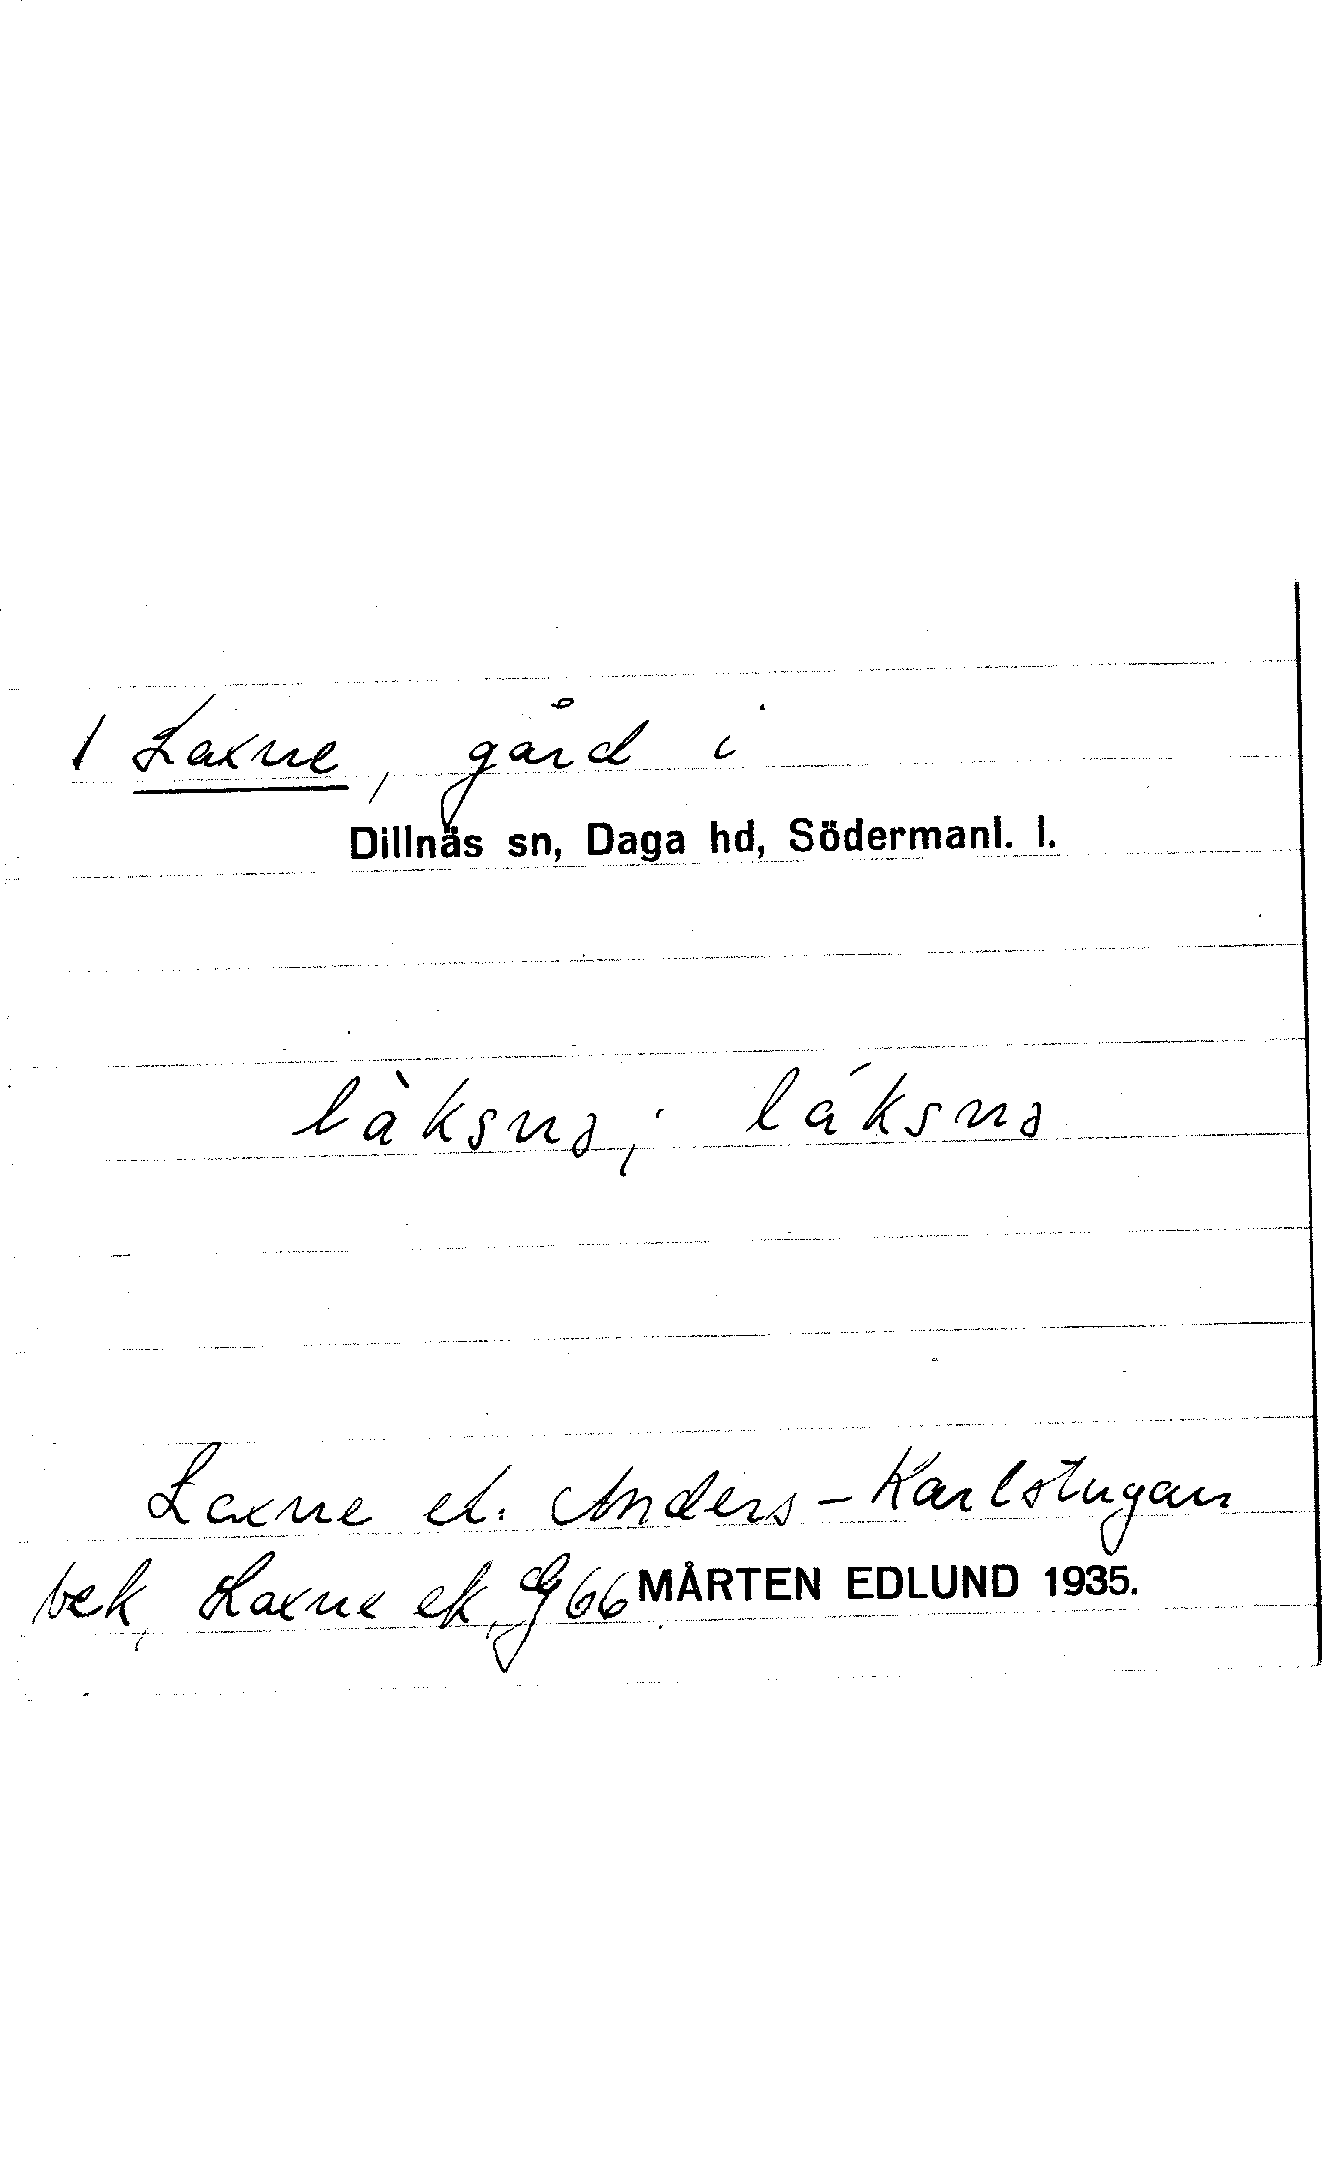 1 Laxne, gård i
Dillnäs sn, Daga hd, Södermanl. l.
làksnə; láksnə
Laxne el. Anders-Karlstugan
bek, Laxne ek, G 66 MÅRTEN EDLUND 1935.